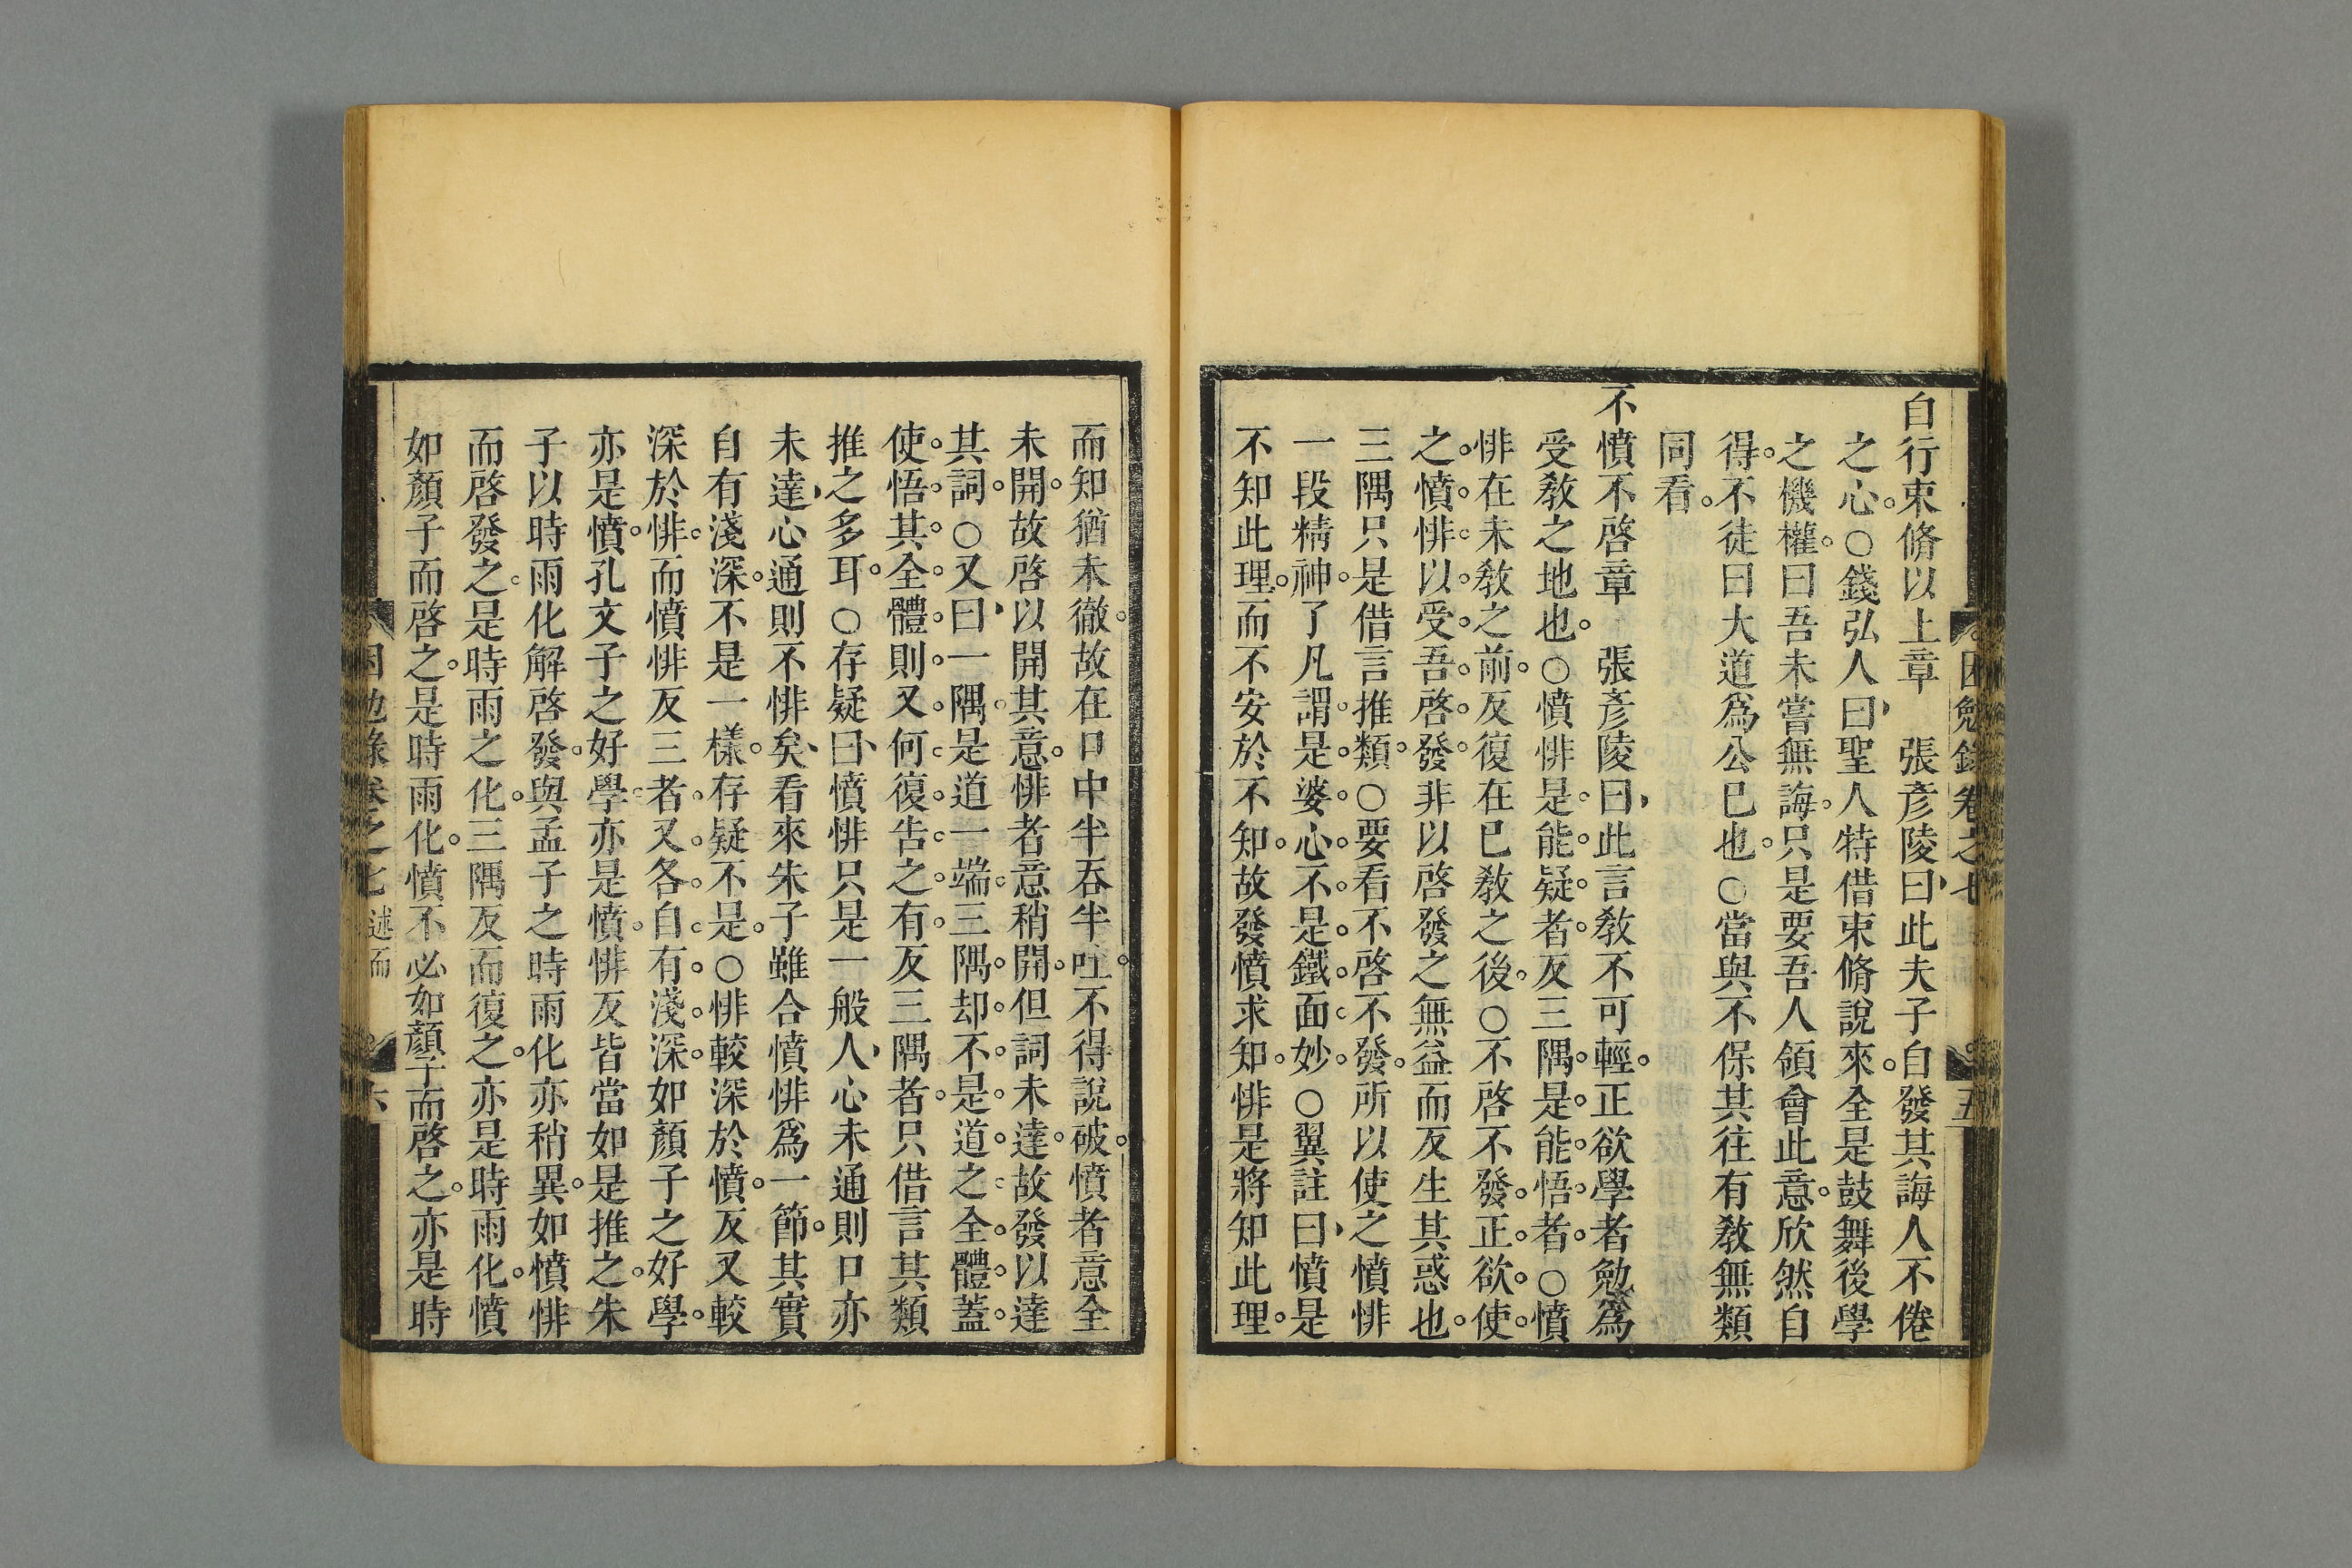 困勉錄卷之七
五
自行束脩以上章　張彥陵曰此夫子自發其誨人不倦
之心○錢弘人曰聖人特借束脩說來全是鼓舞後學
之機權曰吾未嘗無誨只是要吾人領會此意欣然自
得不徒曰大道爲公已也○當與不保其往有敎無類
同看
不憤不啓章　張彥陵曰此言敎不可輕正欲學者勉爲
受敎之地也○憤悱是能疑者反三隅是能悟者○憤
悱在未敎之前反復在已敎之後○不啓不發正欲使
之憤悱以受吾啓發非以啓發之無益而反生其惑也
三隅只是借言推類○要看不啓不發所以使之憤悱
一段精神了凡謂是婆心不是鐵面妙○翼註曰憤是
不知此理而不安於不知故發憤求知悱是將知此理
而知猶未徹故在口中半吞半吐不得說破憤者意全
未開故啓以開其意悱者意稍開但詞未達故發以達
其詞○又曰一隅是道一端三隅却不是道之全體蓋
使悟其全體則又何復告之有反三隅者只借言其類
推之多耳○存疑曰憤悱只是一般人心未通則口亦
未達心通則不悱矣看來朱子雖合憤悱爲一節其實
自有淺深不是一樣存疑不是○悱較深於憤反又較
深於悱而憤悱反三者又各自有淺深如顏子之好學
亦是憤孔文子之好學亦是憤悱反皆當如是推之朱
子以時雨化解啓發與孟子之時雨化亦稍異如憤悱
而啓發之是時雨之化三隅反而復之亦是時雨化憤
如顏子而啓之是時雨化憤不必如顏子而啓之亦是時
困勉錄卷之七
述而
六